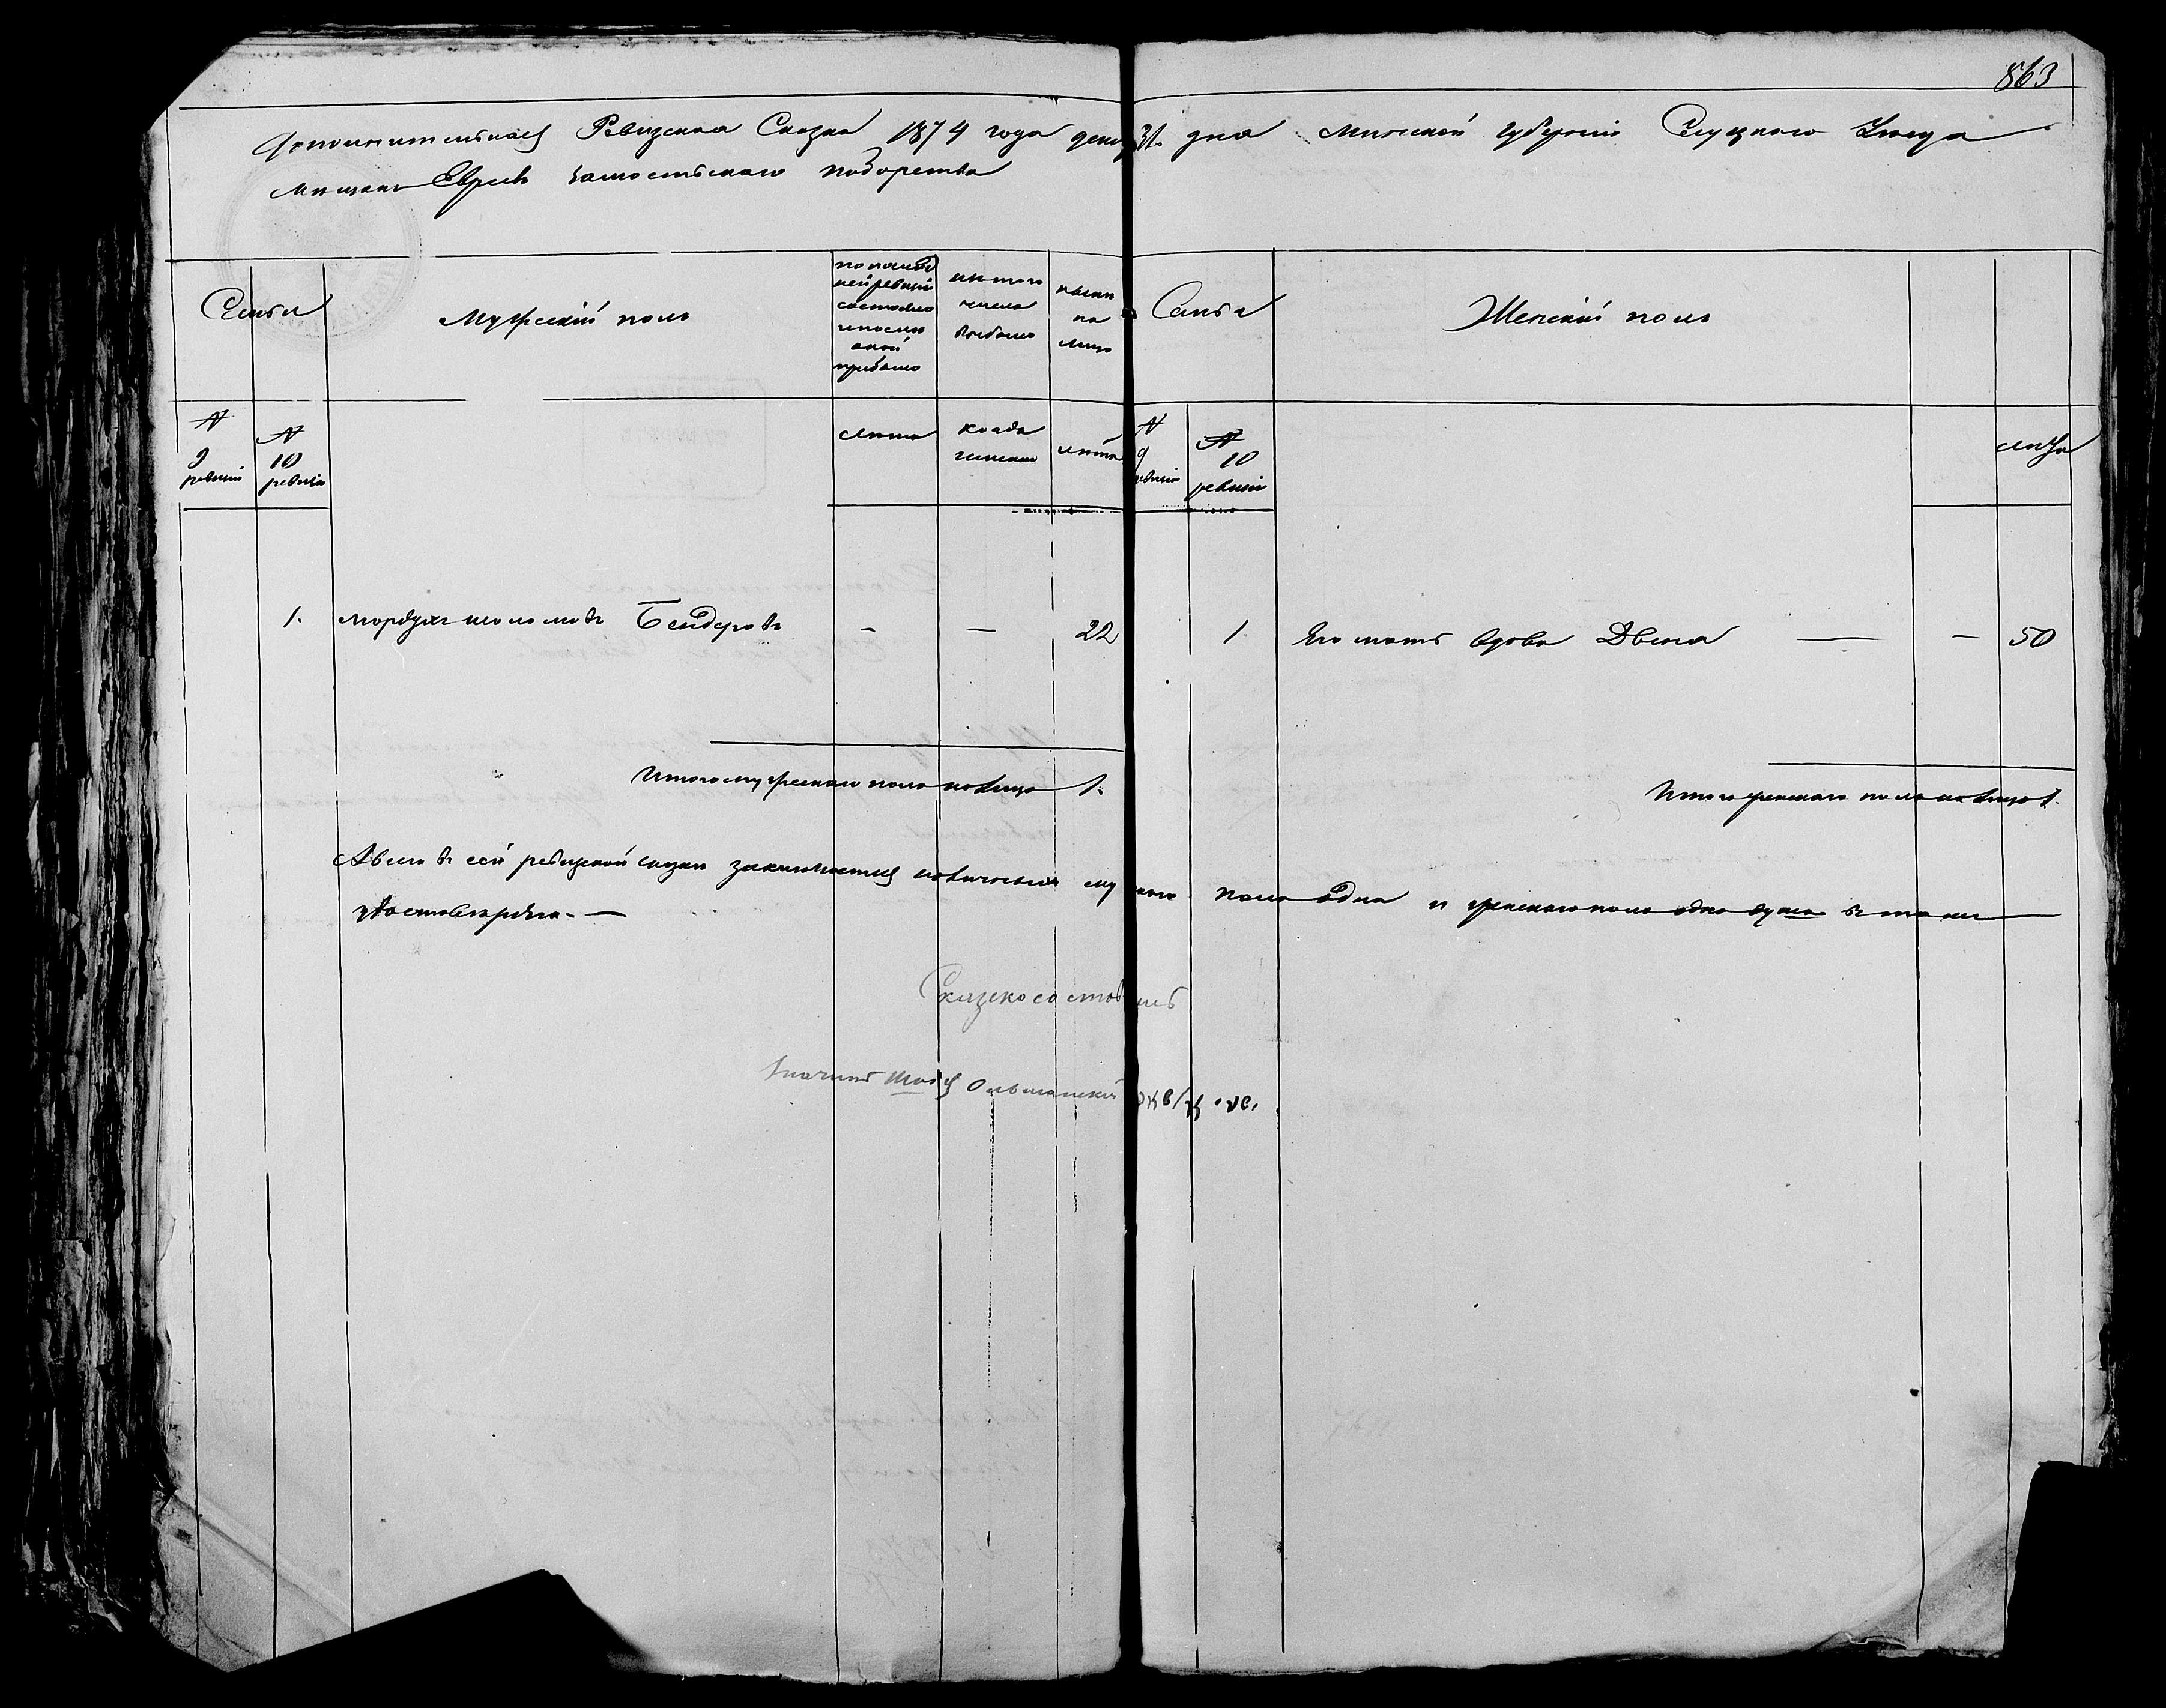 863
Дополнительная Ревизская Сказка 1874 года декаб 31 дня Минской губернии Слуцкого Уезда
Мещанъ Евреевъ
Семья
Мужской полъ
по послед
ней ревизіи
состояло
и после
оной
прибыло
изъ того
числа
выбыло
ныне
на
лицо
Семья
Женскій полъ
№
9
ревизіи
№
10
ревизіи
лета
когда
именно
лета
№
9
ревизіи
№
10
ревизіи
лета
1. Мордухъ Шоломовъ Бендеровъ — — 22
1 Его мать вдова Двейна — — 50
Итого мужескаго пола на лицо 1.
Итого женскаго пола на лицо 1.
А всего въ сей ревизской сказке заключается наличныхъ муж каго пола одна и женскаго пола одна душа въ томъ
удостоверяю. —
Сказку составилъ
Ольшанскій